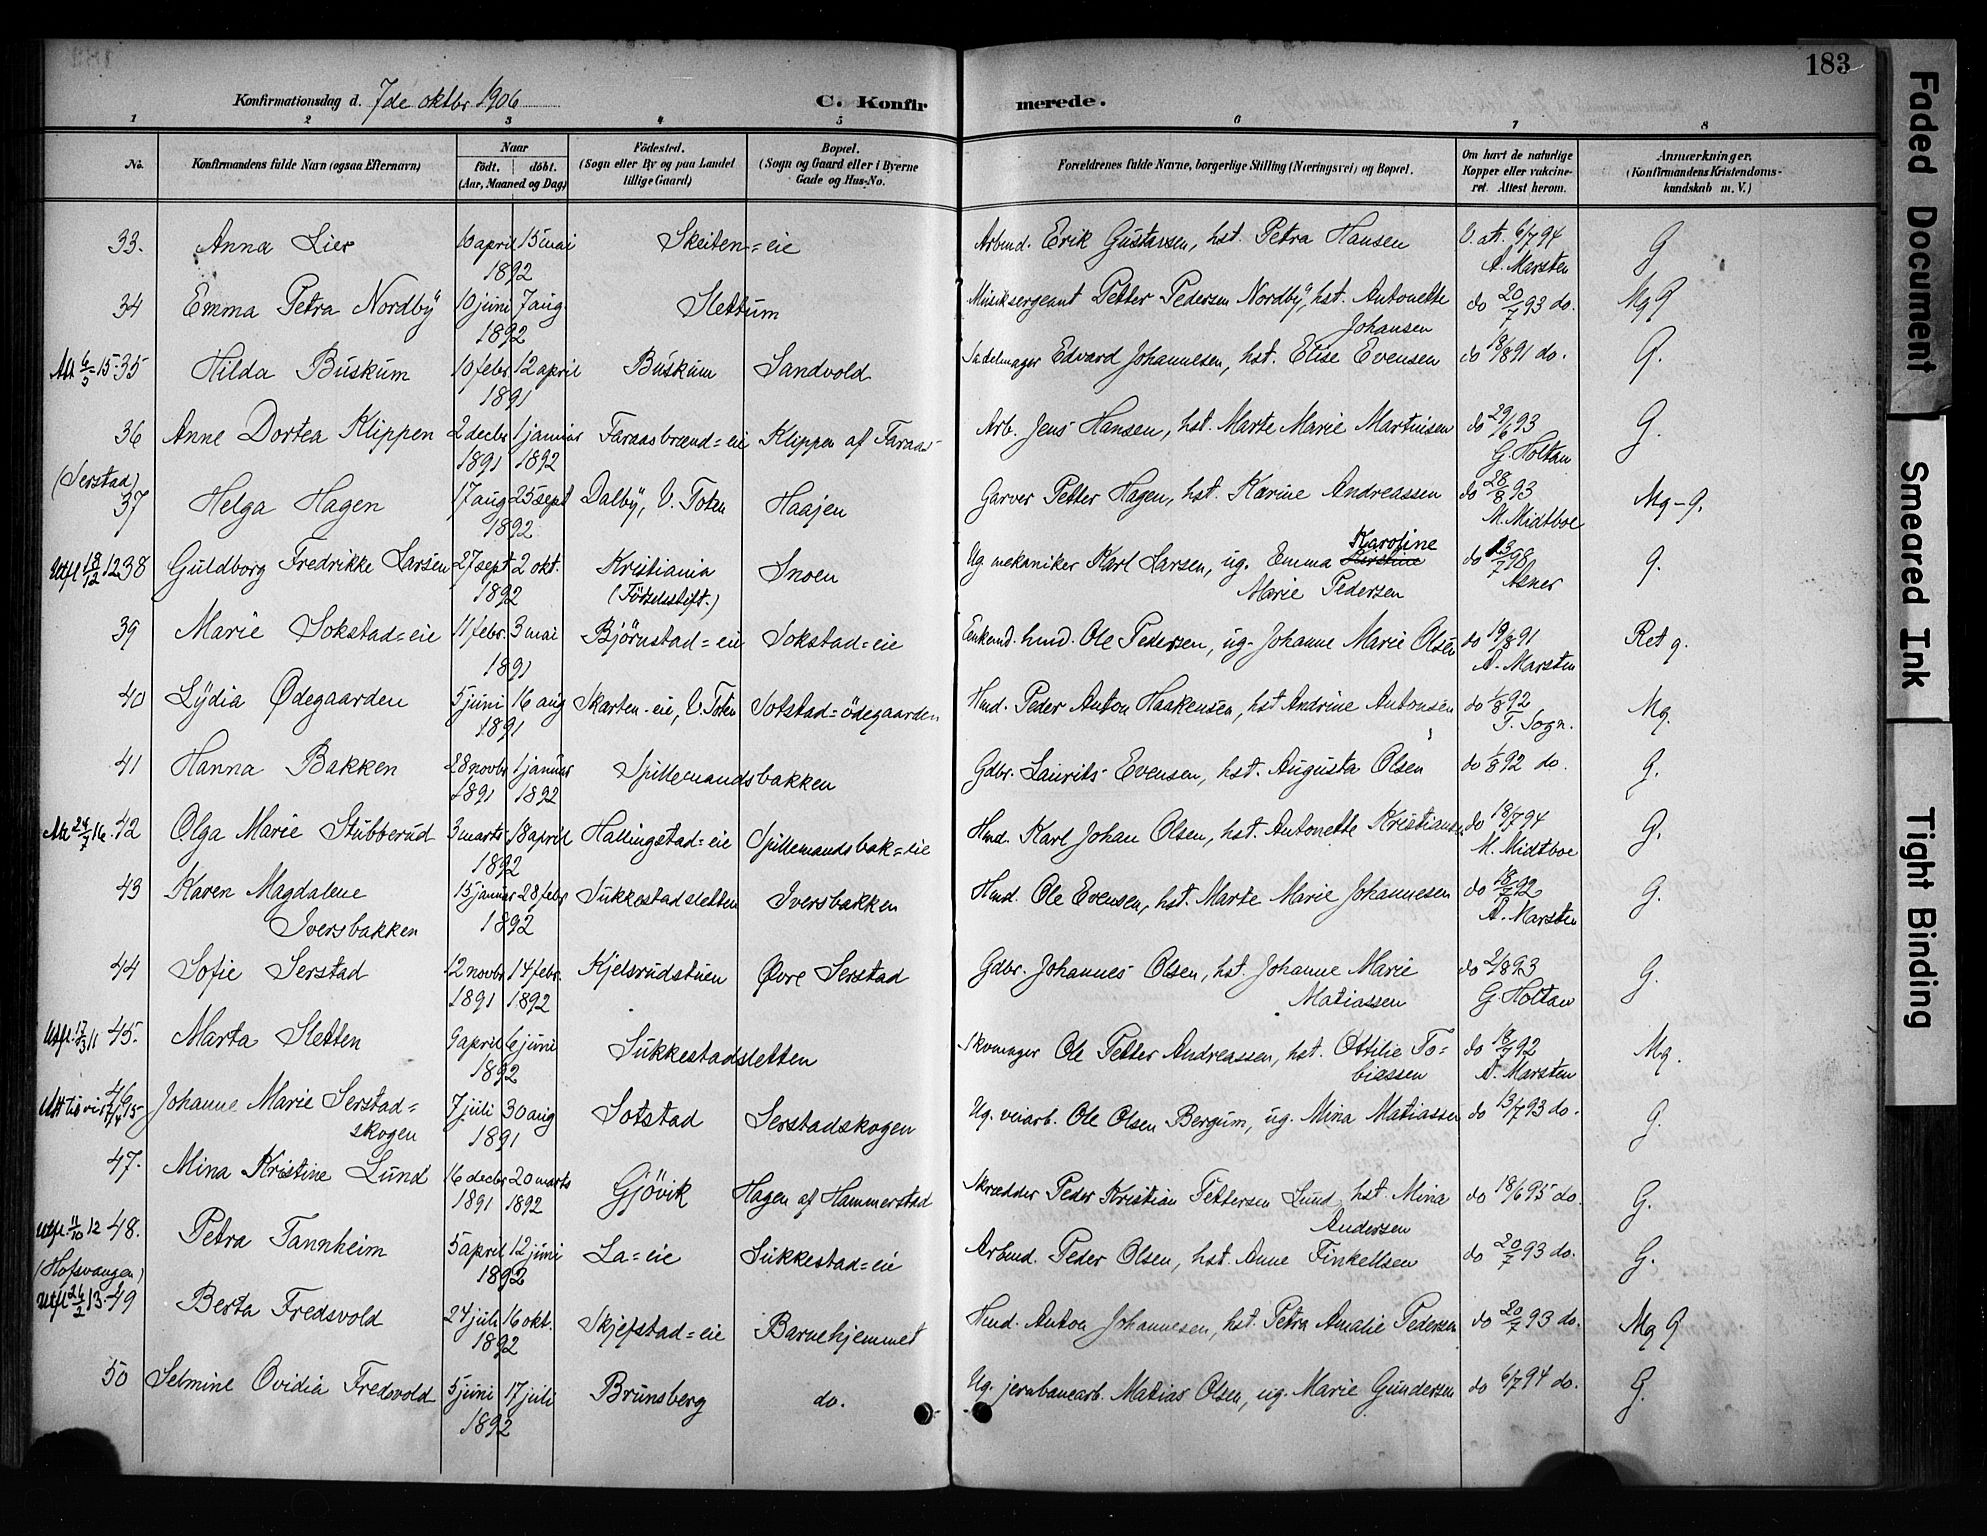 183
Konfirmationsdag d. 7de oktbr 1906 C. Konfirmerede.
1 2 3 4 5 6 7 8
No. Konfirmandens fulde Navn (ogsaa Efternavn) Naar født. døbt. (Aar, Maaned og Dag) Fødested. (Sogn eller By og paa Landet tillige Gaard) Bopæl. (Sogn og Gaard eller i Byerne Gade og Hus-No. Forældrenes fulde Navne, borgerlige Stilling (Næringsvei) og Bopæl. Om havt de naturlige Kopper eller vakcineret. Attest herom. Anmærkninger. (Konfirmandens Kristendomskundskab m. V.)
33. Anna Lier 10 april 15 mai Skeiten=eie Arbmd. Erik Gustavsen, hst. Petra Hansen V. att. 6/7 94 G
1892 A. Marsten
34 Emma Petra Nordby 10 juni 7 aug Slettum Musiksergeant Petter Pedersen Nordby, hst. Antonette do 20/7 93 do. Mg G
1892 Johansen
Att 6/5-15. 35 Hilda Buskum 10 febr 12 april Buskum Sandvold Sadelmager Edvard Johannesen, hst. Elise Evensen do 18/8 91 do. G.
1891
36 Anne Dortea Klippen 2 decbr 1 januar Faraasbrænd=eie Klippen af Faraas Arb. Jens Hansen, hst. Marte Marie Martinsen do 29/6 93 G.
1891 1892 G. Holtan
(Serstad)
37 Helga Hagen 17 aug 25 sept Dalby, V. Toten Haajen Garver Petter Hagen, hst. Karine Andreassen do 28/8 93 Mg-G.
1892 M. Midtboe
Utfl 18/12 12. 38 Guldborg Fredrikke Larsen 27 sept 2 okt. Kristiania Snoen Ug mekaniker Karl Larsen, ug. Emma Karoline do 13/7 98 G.
1892 (Fødselsstift.) Marie Pedersen Asner
39 Marie Sokstad=eie 11 febr. 3 mai Bjørnstad=eie Sokstad=eie Enkemd. hmd. Ole Pedersen, ug. Johanne Marie Olsen do 19/8 91 Ret g.
1891 A. Marsten
40 Lydia Ødegaarden 5 juni 16 aug Skarten-eie, V. Toten Sotstad=ødegaarden Hmd. Peder Anton Haakensen, hst Andrine Antonsen do 1/8 92 Mg.
1891 T. Sogn.
41 Hanna Bakken 28 novbr 1 januar Spillemandsbakken Gdbr. Laurits Evensen, hst. Augusta Olsen do 1/8 92 do. G.
1891 1892
Att 24/7 16. 42 Olga Marie Stubberud 3 marts 18 april Hallingstad=eie Spillemandsbak=eie Hmd. Karl Johan Olsen, hst. Antonette Kristiansen do 18/7 94 G.
1892 M. Midtboe
43 Karen Magdalene 15 januar 28 febr Sukkestadsletten Iversbakken Hmd. Ole Evensen, hst. Marte Marie Johannesen do 18/7 92 G.
Iversbakken 1892 A. Marsten
44 Sofie Serstad 12 novbr 14 febr. Kjelsrudstuen Øvre Serstad Gdbr. Johannes Olsen, hst. Johanne Marie do 2/8 93 G.
1891 1892 Matiassen G. Holtan
Utfl. 17/3 11 45. Marta Sletten 9 april 6 juni Sukkestadsletten Skomager Ole Petter Andreassen, hst. Ottilie To= do 18/7 92 Mg.
1892 biassen A. Marsten
46 Johanne Marie Serstad= 7 juli 30 aug Sotstad Serstadskogen Ug. veiarb. Ole Olsen Bergum, ug. Mina Matiassen do 13/7 93 do. G.
skogen 1891
47. Mina Kristine Lund 16 decbr 20 marts Gjøvik Hagen af Hammerstad Skrædder Peder Kristian Pettersen Lund, hst. Mina do 18/6 95 do. G.
1891 1892 Andersen
Utfl. 11/10 12 48. Petra Tannheim 5 april 12 juni La=eie Sukkestad=eie Arbmd. Peder Olsen, hst. Anne Finkelsen do 20/7 93 do. G.
(Hofsvangen) 1892
Utfl 26/2 13. 49 Berta Fredsvold 24 juli 16 okt. Skjefstad=eie Barnehjemmet Hmd. Anton Johannesen, hst. Petra Amalie Pedersen do 20/7 93 do. Mg G
1892
50 Selmine Ovidia Fredsvold 5 juni 17 juli Brunsberg do. Ug. jernbanearb. Matias Olsen, ug. Marie Gundersen do 6/7 94 do. G.
1892
Faded Document
Smeared Ink
Tight Binding